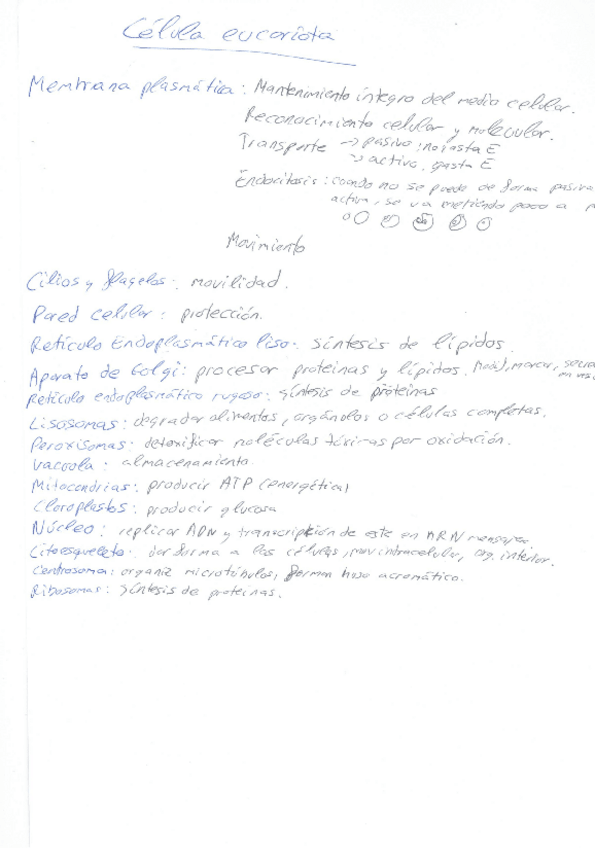 Célula eucariota
Membrana plasmática: Mantenimiento íntegro del medio celular.
Reconocimiento celular y molecular.
Transporte → pasivo: no gasta E
→ activo. gasta E
Endocitosis: cuando no se puede de forma pasiva
activa, se va metiendo poco a
Movimiento
Cilios y flagelos: movilidad.
Pared celular: protección.
Retículo Endoplasmático liso: síntesis de lípidos.
Aparato de Golgi: procesar proteínas y lípidos. Modi, marcar, secre
Retículo endoplasmático rugoso: síntesis de proteínas
Lisosomas: degradar alimentos, orgánulos o células completas.
Peroxisomas: detoxificar moléculas tóxicas por oxidación.
Vacuola: almacenamiento.
Mitocondrias: producir ATP (energética)
Cloroplastos: producir glucosa
Núcleo: replicar ADN y transcripción de este en ARN mensajero
Citoesqueleto: dar forma a las células, mov intracelular, org. interior.
Centrosoma: organiz microtúbulos, forman huso acromático.
Ribosomas: síntesis de proteínas.